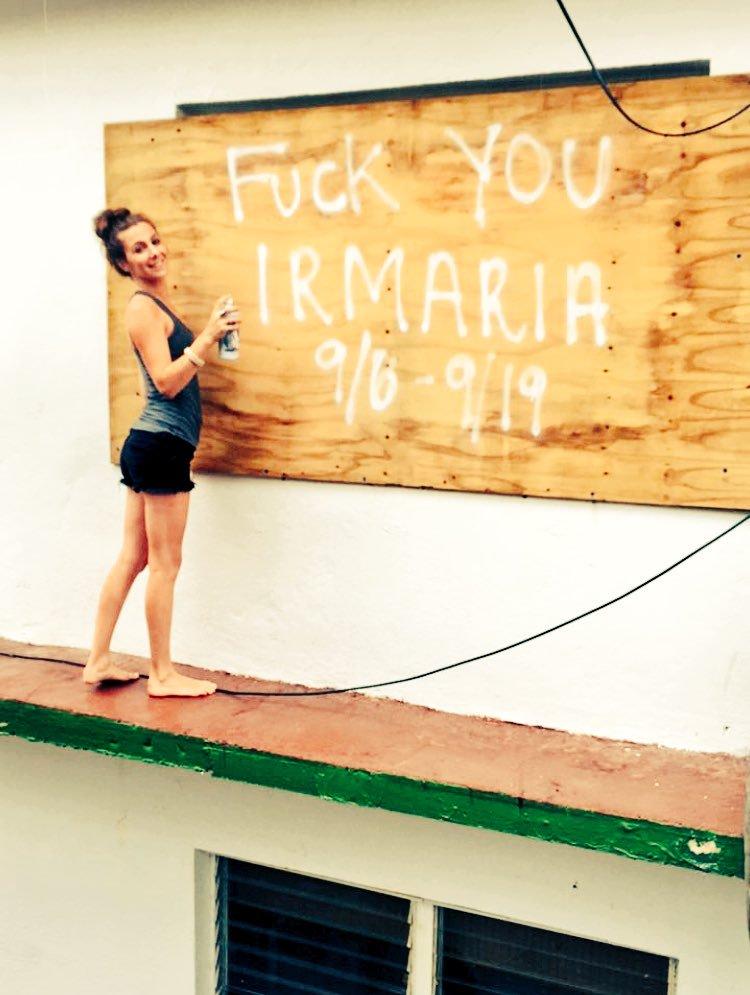 FUCK YOU
IRMARIA
9/6-9/19